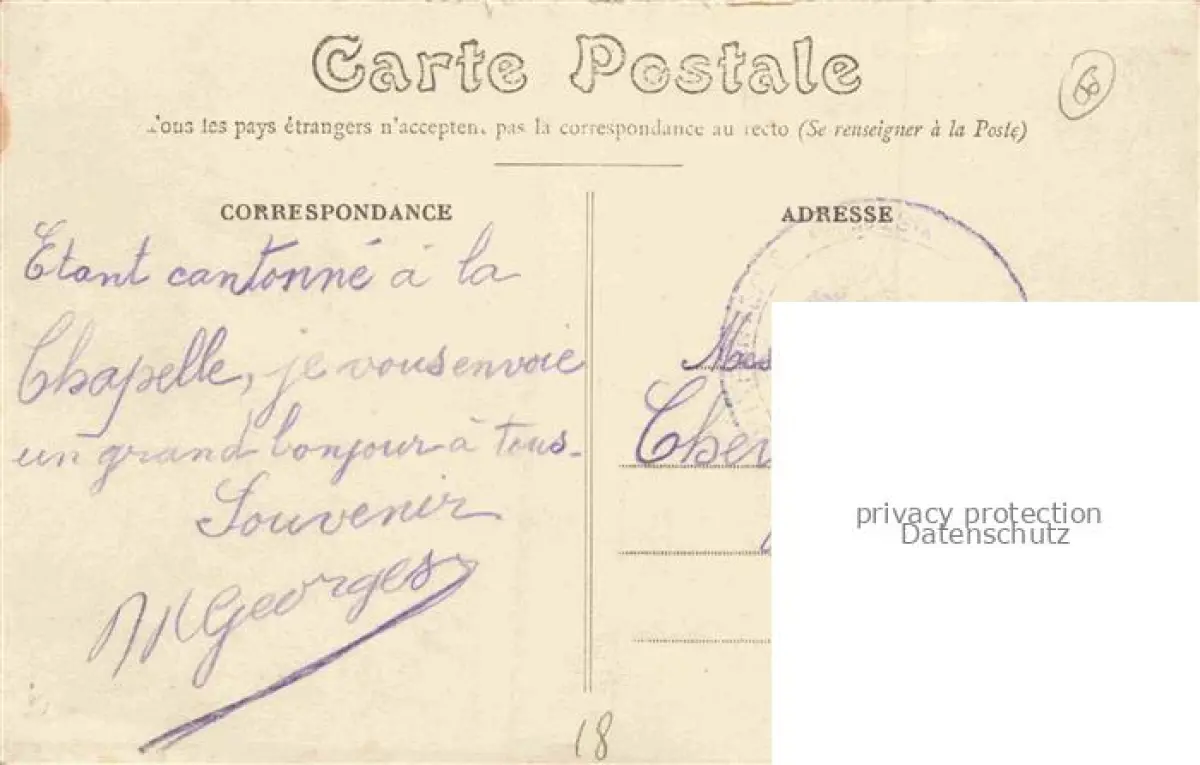 Carte Postale
6
Tous les pays étrangers n'acceptent pas la correspondance au recto (Se renseigner à la Poste)
CORRESPONDANCE
Etant cantonné à la
Chapelle, je vous envoie
un grand bonjour à tous.
Souvenir
Georges
18
ADRESSE
privacy protection
Datenschutz